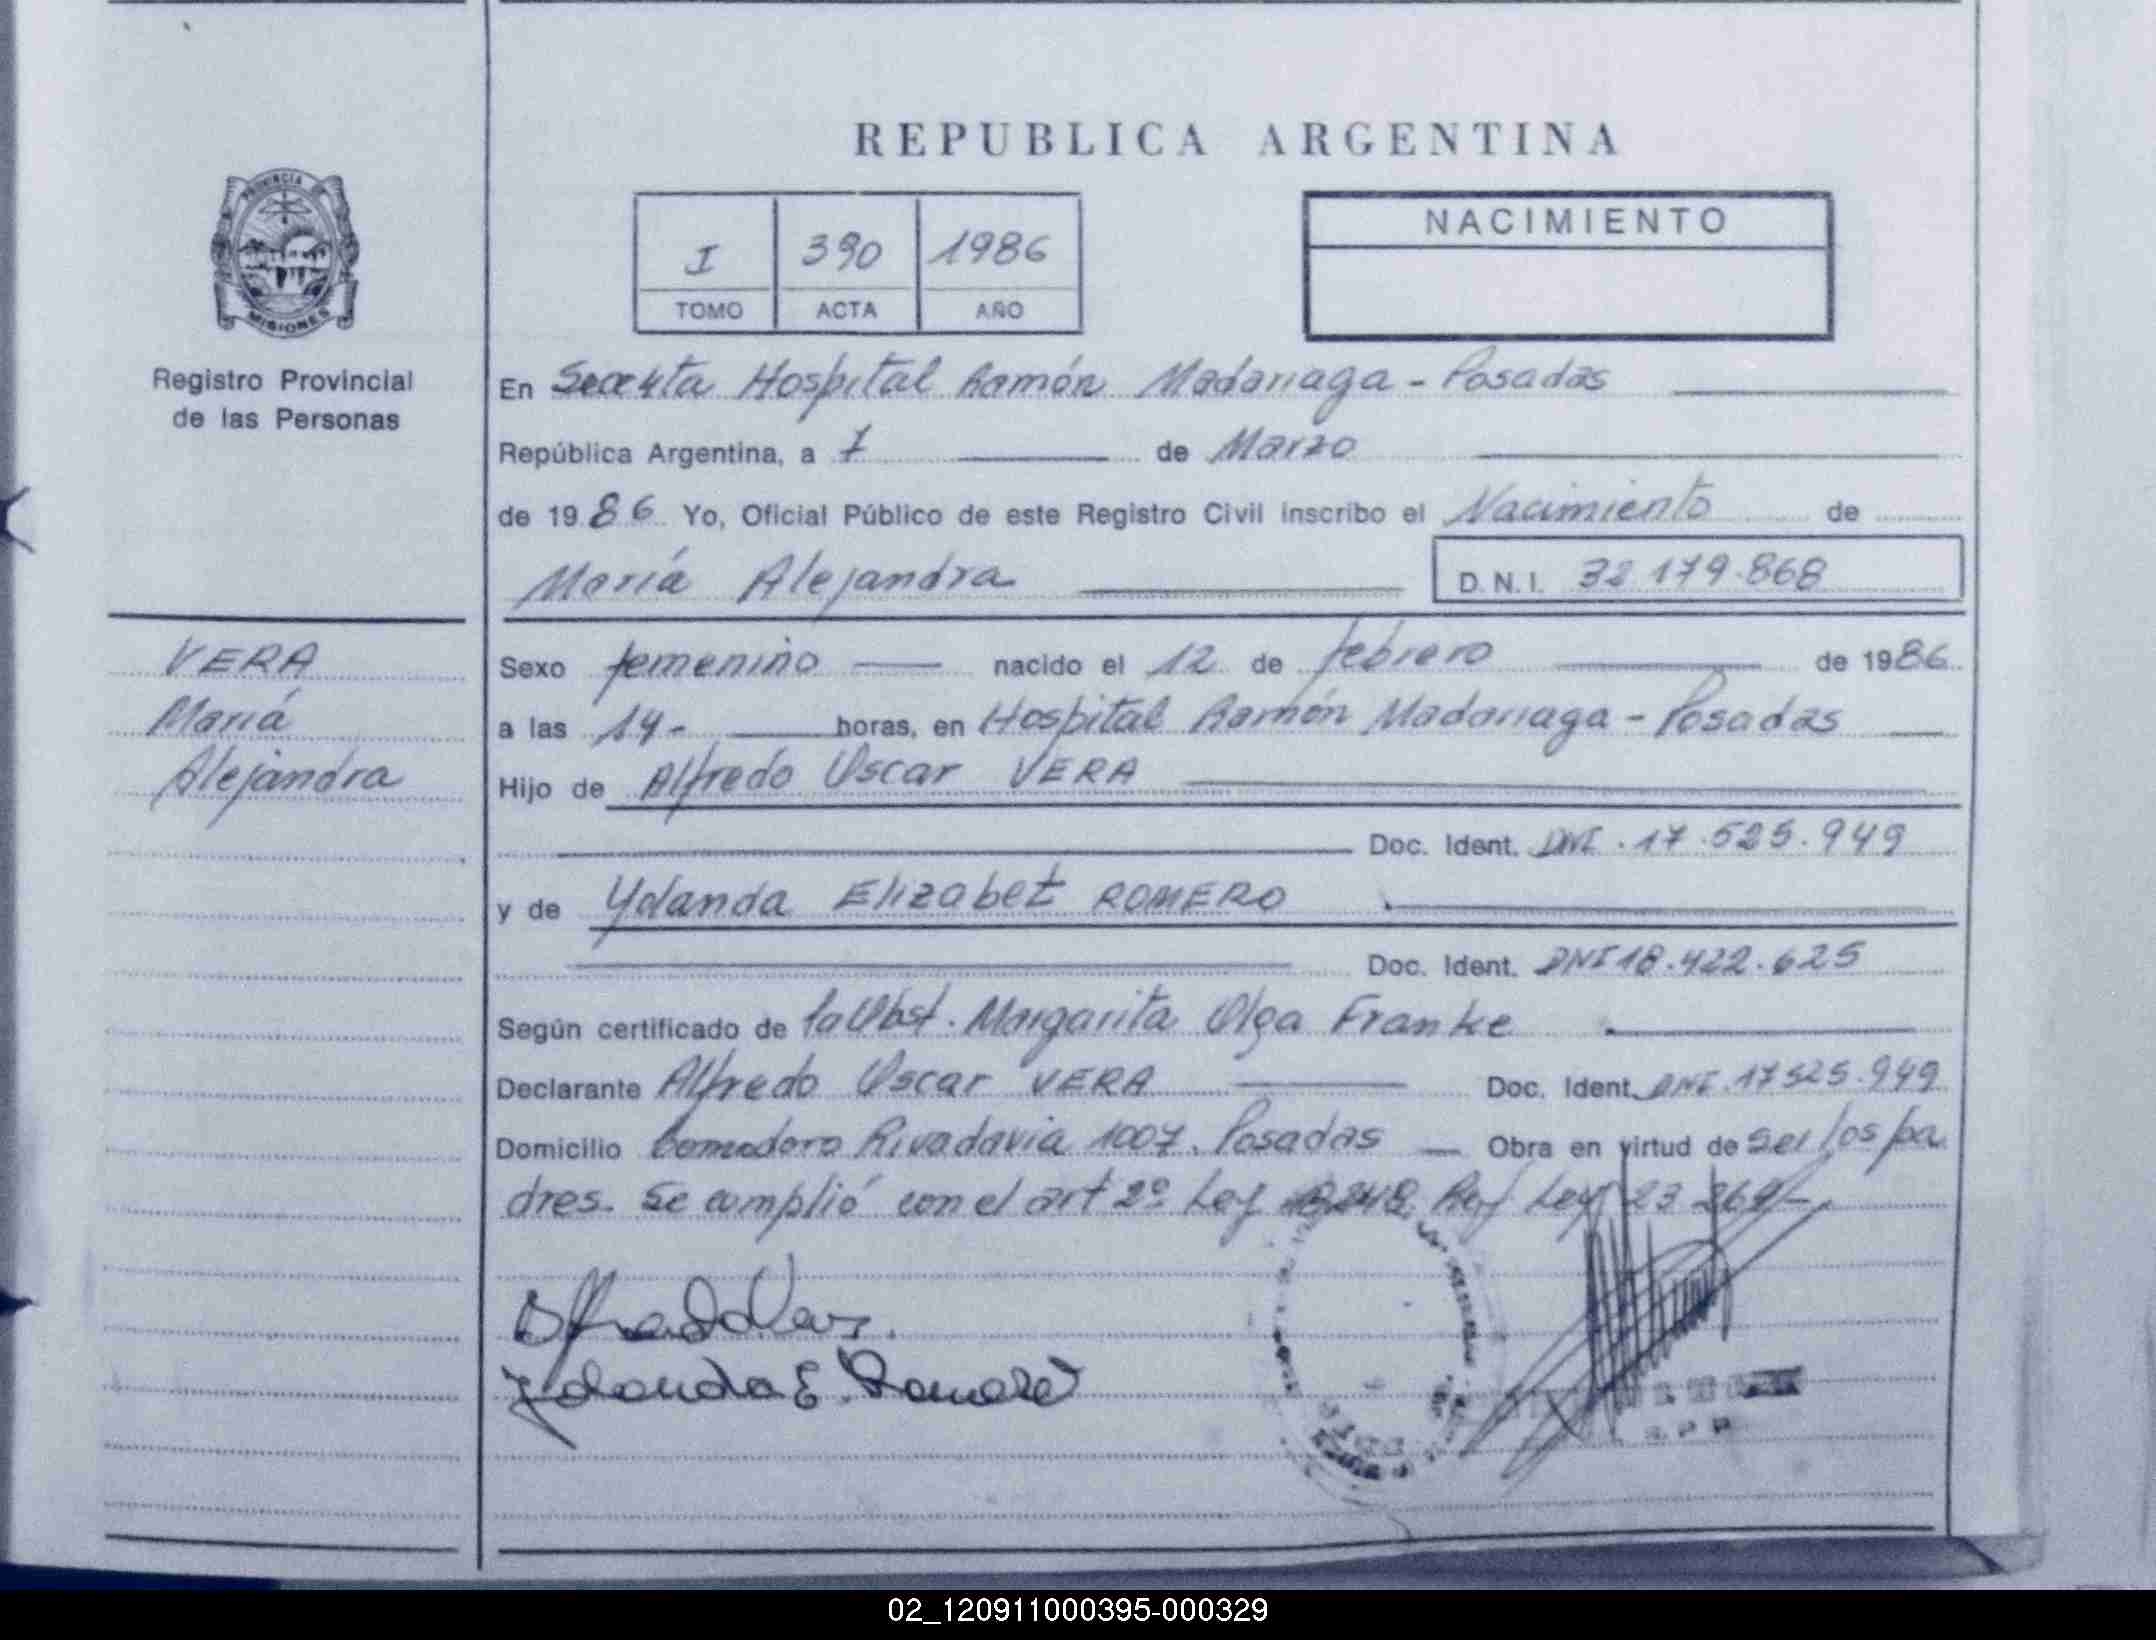 REPUBLICA ARGENTINA
PROVINCIA DE
MISIONES
Registro Provincial
de las Personas
I 390 1986
TOMO ACTA AÑO
NACIMIENTO
En Hospital Ramón Madariaga - Posadas
República Argentina, a 7 de Marzo
de 1986 Yo, Oficial Público de este Registro Civil inscribo el Nacimiento de
María Alejandra D.N.I. 32.179.868
VERA
María
Alejandra
Sexo femenino nacido el 12 de febrero de 1986
a las 14- horas, en Hospital Ramón Madariaga - Posadas
Hijo de Alfredo Oscar VERA
Doc. Ident. DNI. 17.525.949
y de Yolanda Elizabet ROMERO
Doc. Ident. DNI 18.422.625
Según certificado de la Obst. Margarita Olga Franke
Declarante Alfredo Oscar VERA Doc. Ident. DNI. 17525.949
Domicilio Comodoro Rivadavia 1007. Posadas Obra en virtud de ser los pa
dres. Se cumplió con el art 2º Ley Ref Ley 23
Yolanda E. Romero
02_120911000395-000329